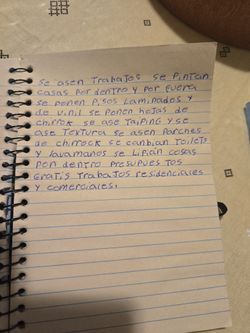 se asen Trabajos se pintan
casas por dentro y por fuera
se ponen pisos Laminados y
de vinil se ponen hojas de
chirrock se ase Taiping y se
ase Textura se asen Parches
de chirrock se canbian Toilets
y lavamanos se Lipian cosas
por dentro Presupues Tos
Gratis Trabajos residenciales
y comerciales.